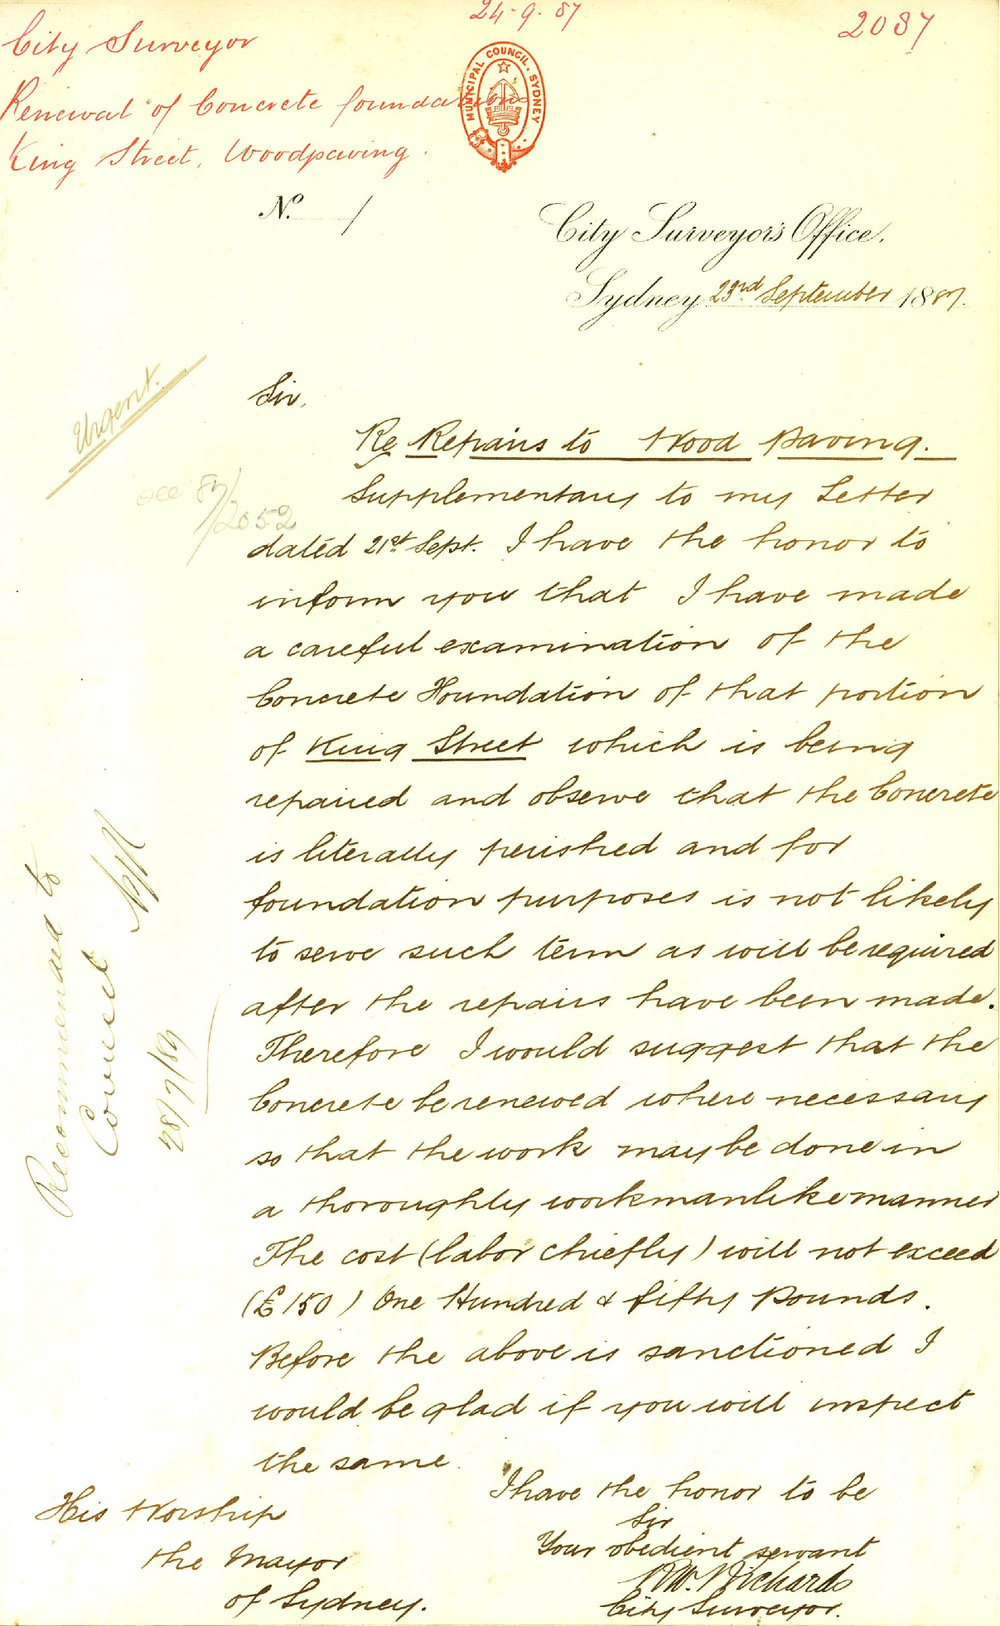 24.9.87
2087
City Surveyor
Renewal of Concrete foundations
King Street, Woodpaving.
MUNICIPAL COUNCIL. SYDNEY
No. /
City Surveyor's Office.
Sydney 23rd September 1887.
Urgent.
Sir,
Re Repairs to Wood Paving.
87/2052
Supplementary to my Letter
dated 21st Sept. I have the honor to
inform you that I have made
a careful examination of the
Concrete Foundation of that portion
of King Street which is being
repaired and observe that the Concrete
is literally perished and for
foundation purposes is not likely
to serve such term as will be required
after the repairs have been made.
Therefore I would suggest that the
Concrete be renewed where necessary
so that the work may be done in
a thoroughly workmanlike manner
The cost (labor chiefly) will not exceed
(£150) One Hundred & fifty Pounds.
Before the above is sanctioned I
would be glad if you will inspect
the same.
Recommended to
Council
I have the honor to be
Sir
Your obedient servant
Richards
City Surveyor.
His Worship
the Mayor
of Sydney.